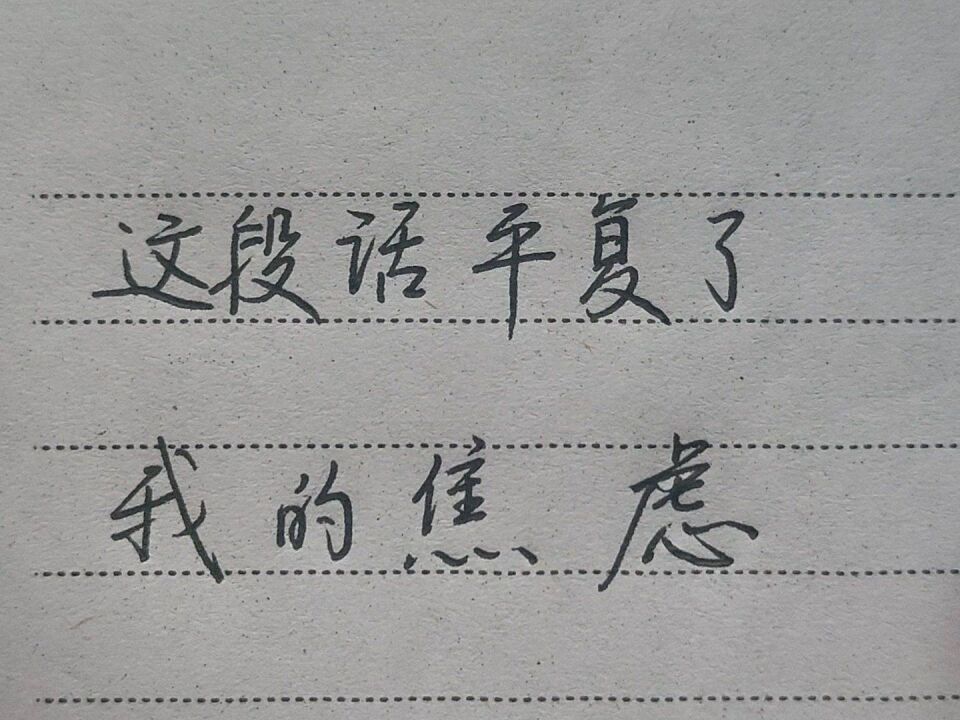 这段话平复了
我的焦虑